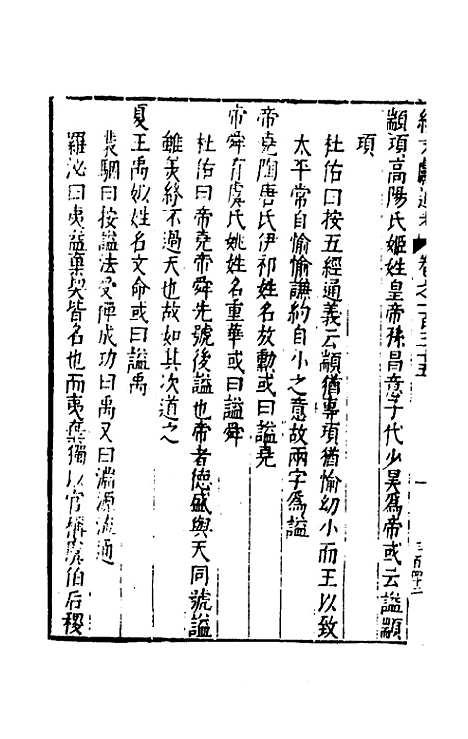 續文獻通考 卷之一百三十五 一 三百四十二
顓頊高陽氏姬姓皇帝孫昌意子代少昊為帝或云諡顓
頊
杜佑曰按五經通義云顓猶專頊猶愉幼小而王以致
太平常自愉愉謙約自小之意故兩字為諡
帝堯陶唐氏伊祁姓名放勳或曰諡堯
帝舜有虞氏姚姓名重華或曰諡舜
杜佑曰帝堯帝舜先號後諡也帝者德盛與天同號諡
雖美終不過天也故如其次道之
夏王禹姒姓名文命或曰諡禹
裴駰曰按諡法受禪成功曰禹又曰淵源流通
羅泌曰夷益棄契皆名也而夷棄獨以官稱實伯后稷